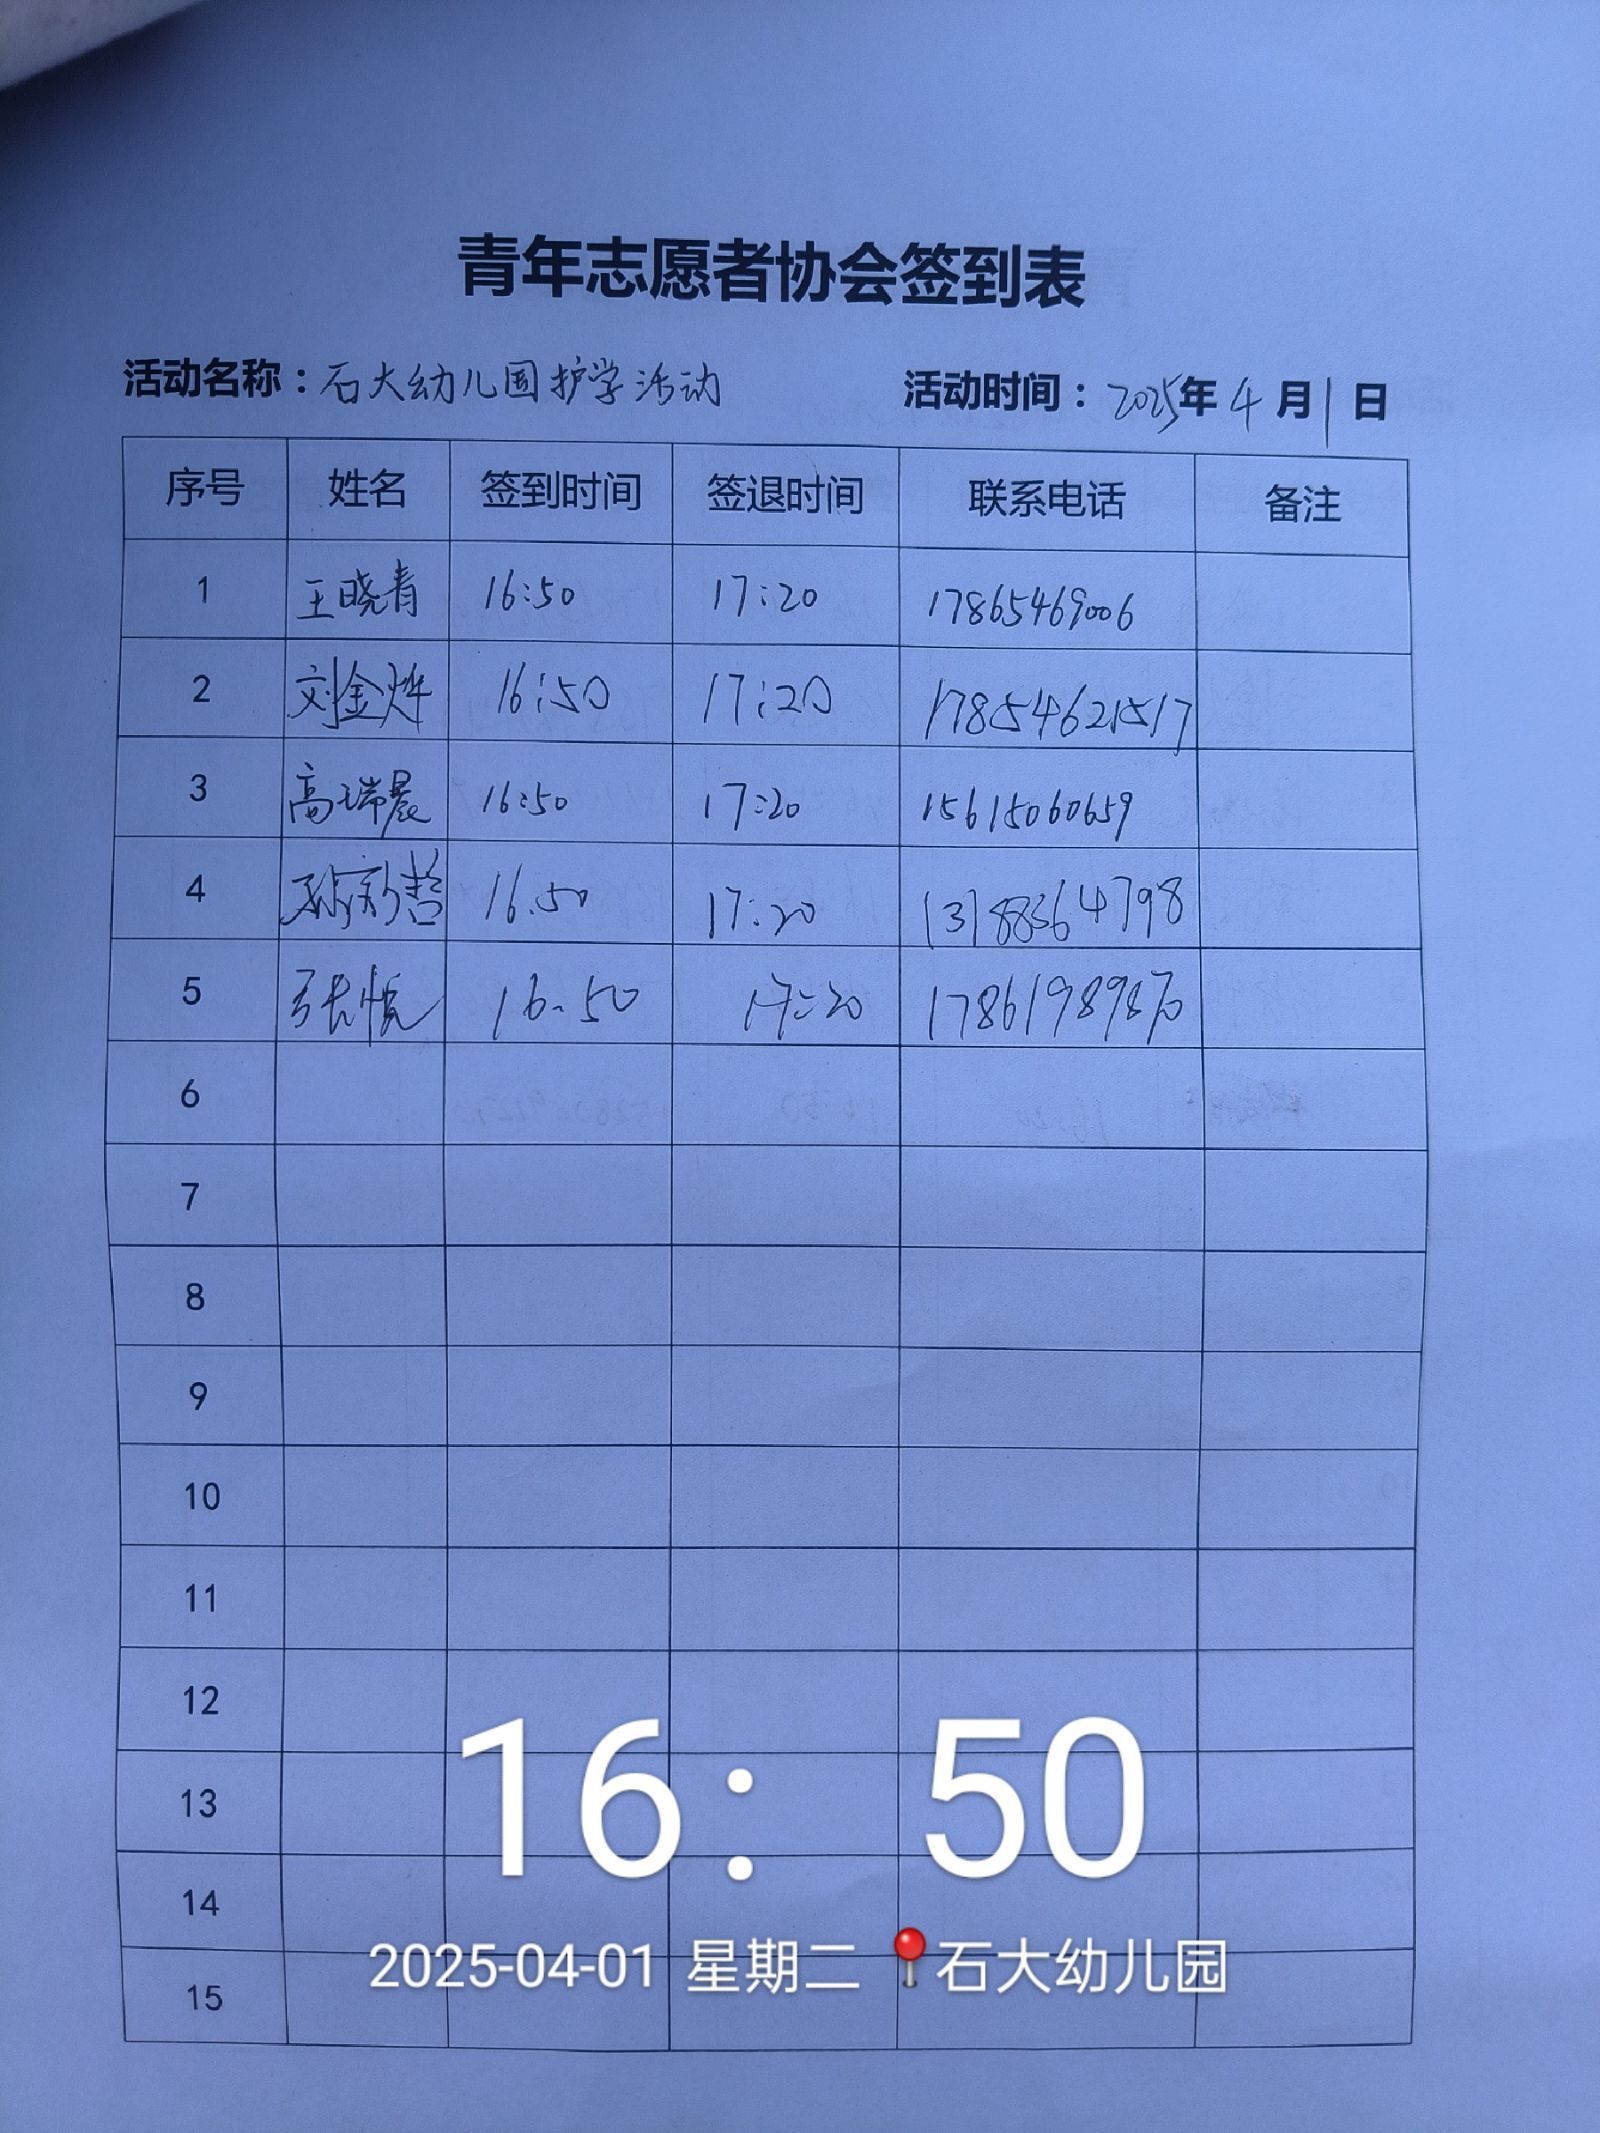 青年志愿者协会签到表
活动名称：石大幼儿园护学活动 活动时间：2025年4月1日
序号 姓名 签到时间 签退时间 联系电话 备注
1 王晓青 16:50 17:20 17865469006
2 刘金烨 16:50 17:20 17854621517
3 高瑞晨 16:50 17:20 15615060659
4 16.50 17:20 13188364798
5 张悦 16:50 17:20
6
7
8
9
10
11
12
13
14
15
16:50
2025-04-01 星期二 石大幼儿园